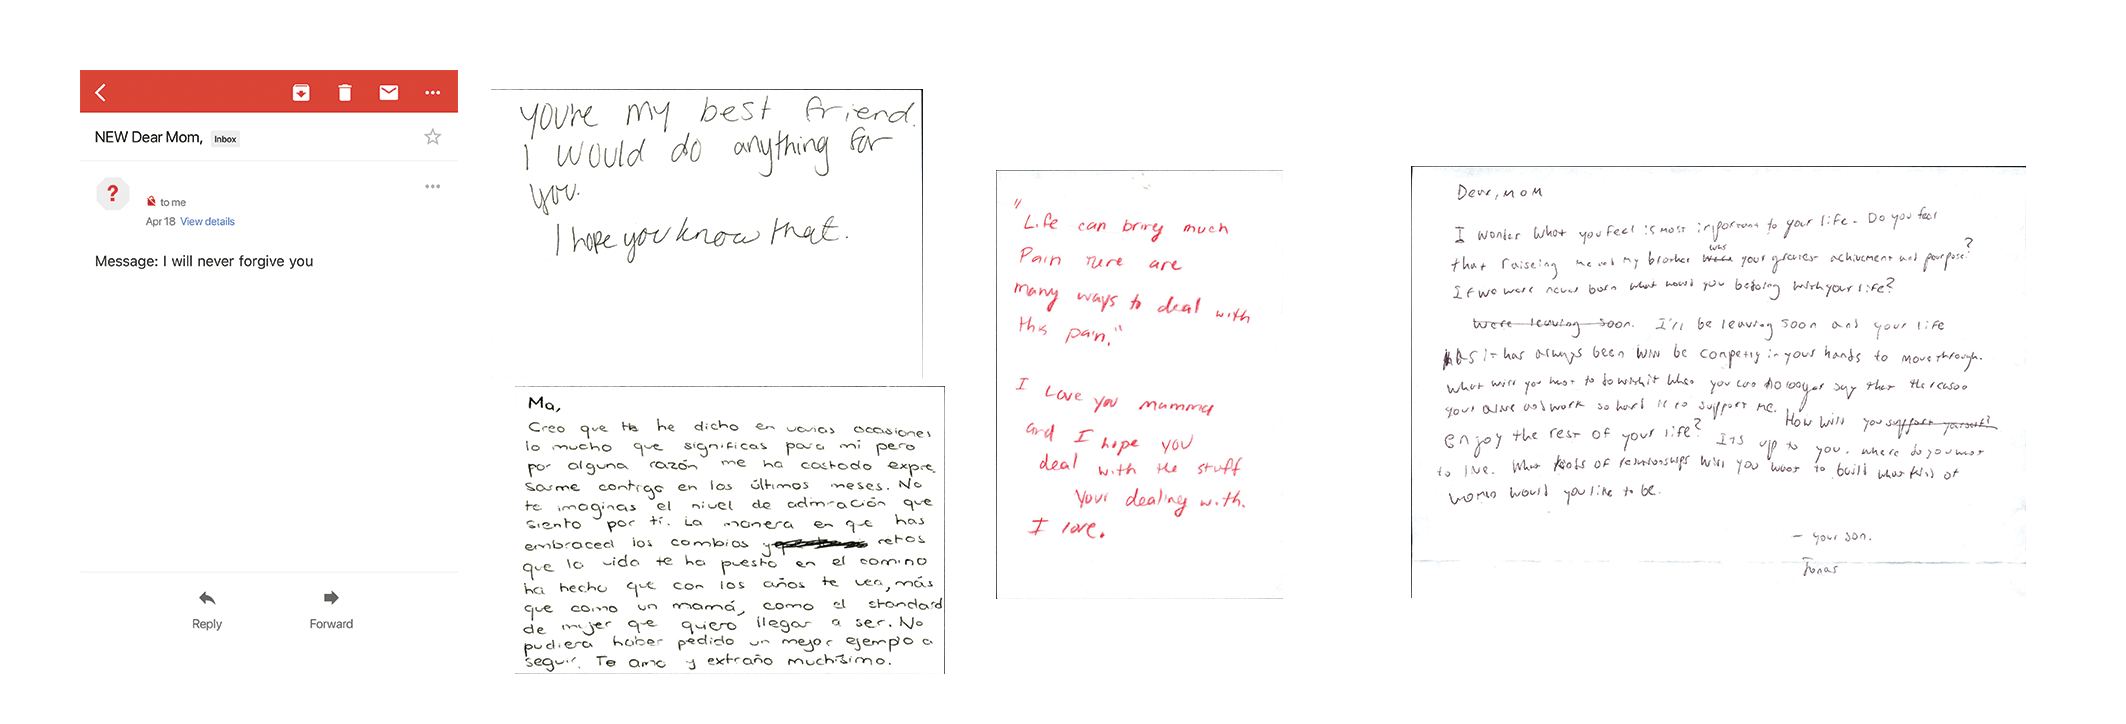 NEW Dear Mom, Inbox
?
to me
Apr 18 View details
Message: I will never forgive you
Reply
Forward
youre my best friend.
I would do anything for
you.
I hope you know that.
Ma,
Creo que te he dicho en varias occasiones
lo mucho que significas para mi pero
por alguna razón me ha costado expre
sarme contigo en los últimos meses. No
te imaginas el nivel de admiración que
siento por tí. La manera en que has
embraced los cambios y retos
que la vida te ha puesto en el camino
ha hecho que con los años te vea, más
que como un mamá, como el standard
de mujer que quiero llegar a ser. No
pudiera haber pedido un mejor ejemplo a
seguir. Te amo y extraño muchísimo.
"Life can bring much
Pain There are
many ways to deal with
this pain."
I Love you mumma
and I hope you
deal with the stuff
Your dealing with.
I love.
Dear, MOM
I wonder what you feel is most important to your life. Do you feel
that raiseing me and my brother was your greatest achivement and pourpose?
If we were never born what would you be doing with your life?
Were leaving soon. I'll be leaving soon and your life
As it has always been will be in your hands to move through.
What will you want to do with it when you can no longer say that the reason
your alive and work so hard is to support me. How will you support yourself?
enjoy the rest of your life? Its up to you. where do you want
to live. What kinds of relationships will you want to build what kind of
women would you like to be.
- your son.
Jonas